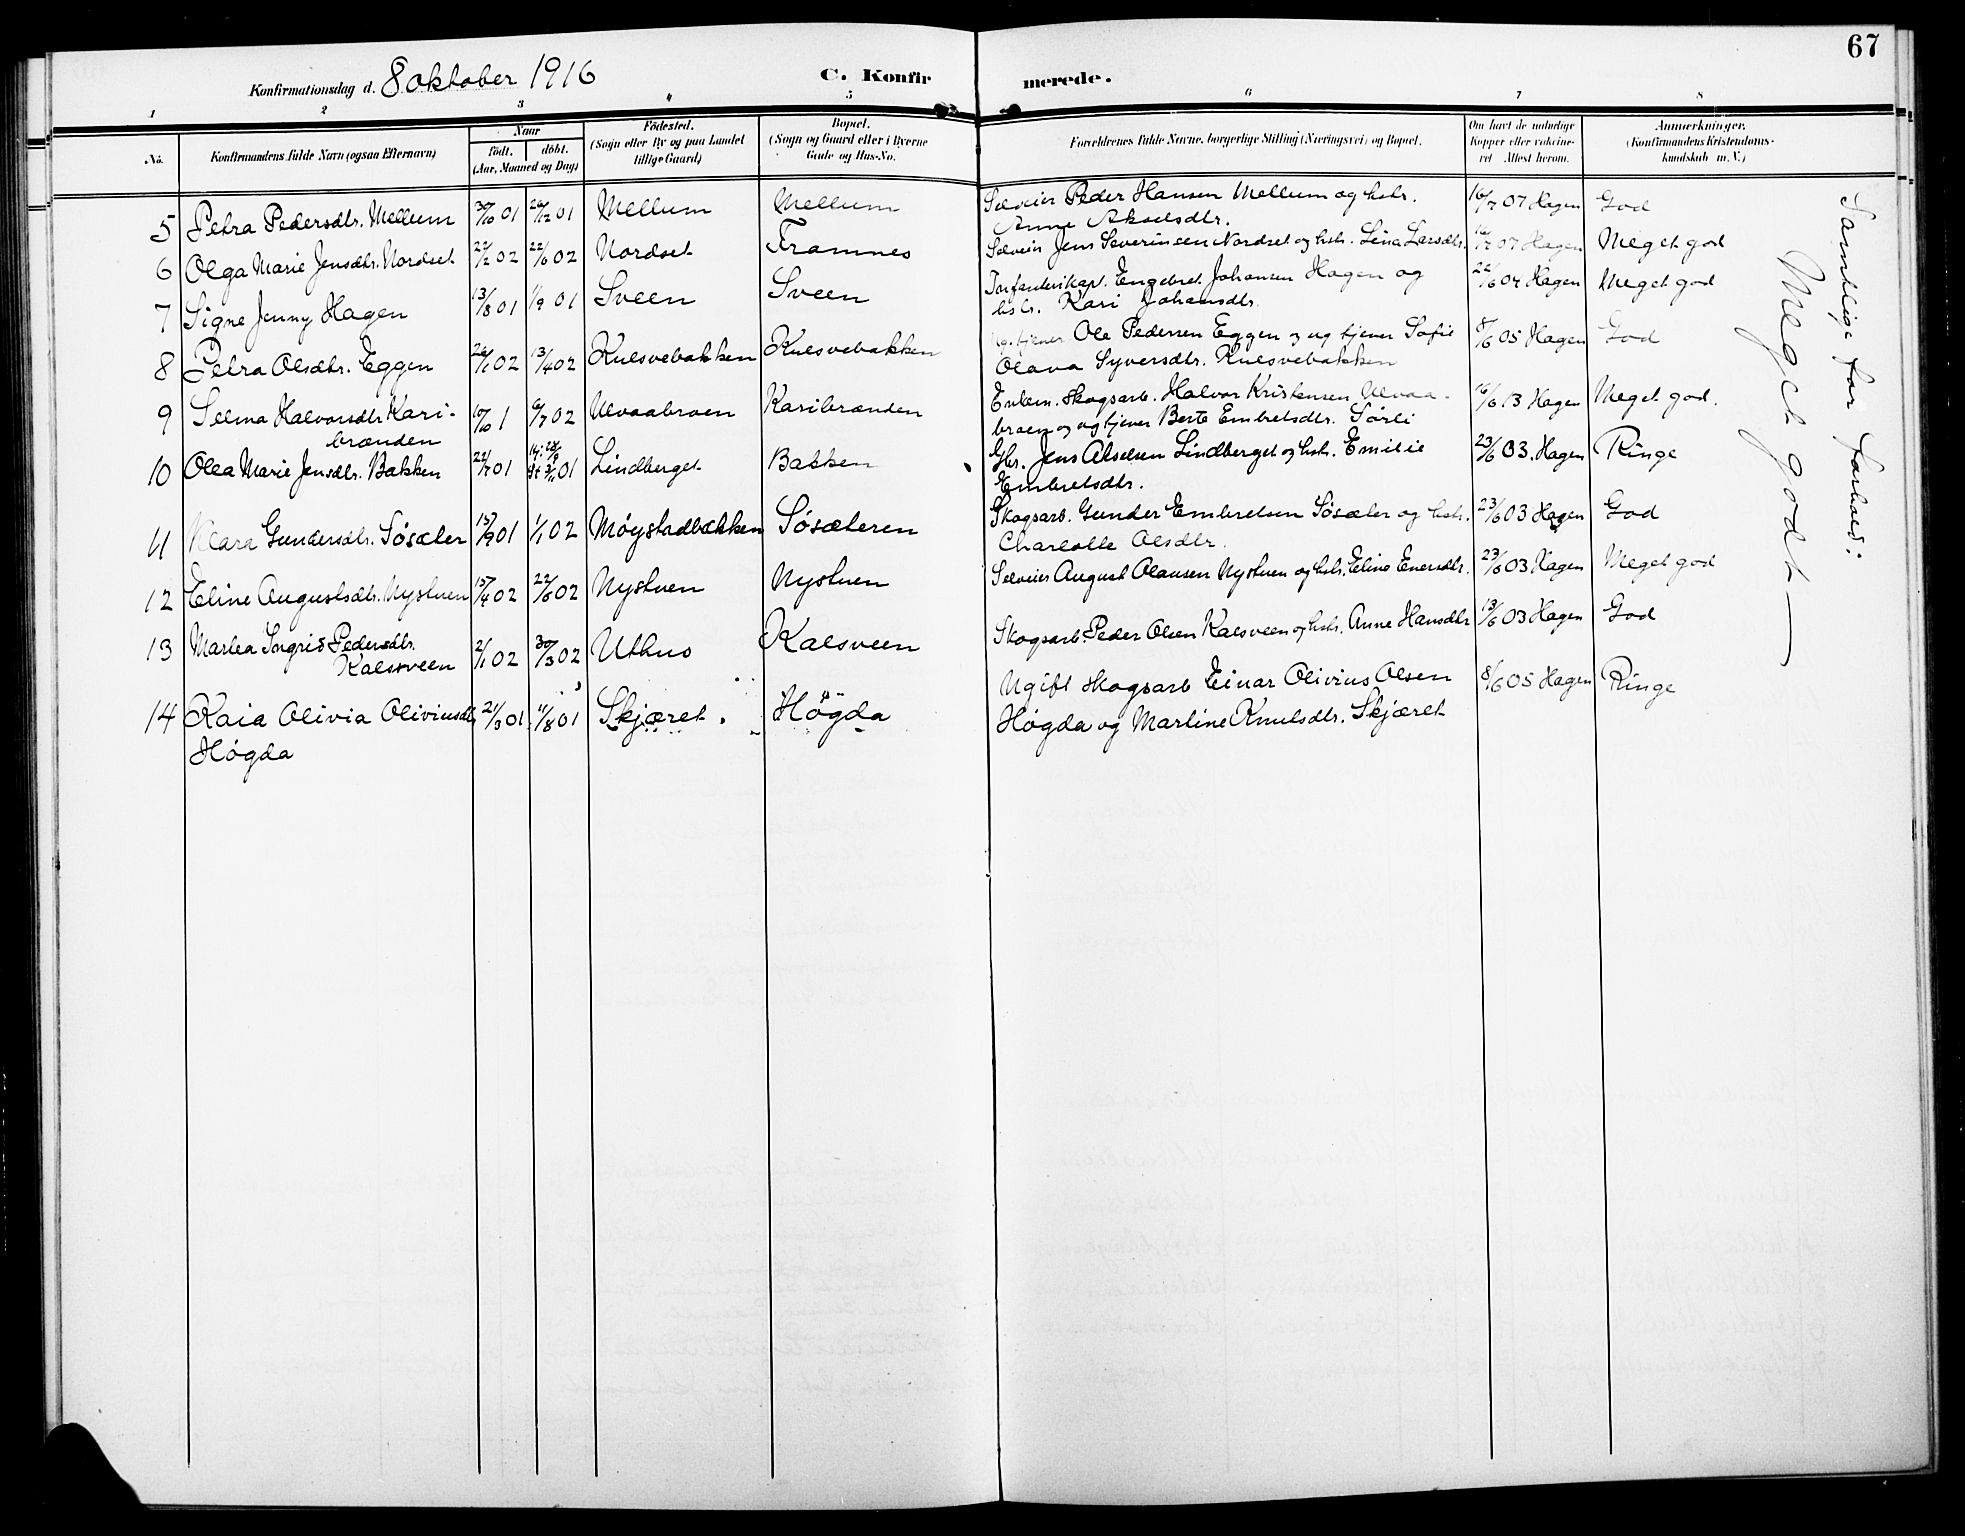 67
Konfirmationsdag d. 8 oktober 1916 C. Konfir merede.
1 2 3 4 5 6 7 8
No. Konfirmandens fulde Navn (ogsaa Efternavn) Naar født. døbt. (Aar, Maaned og Dag) Fødested. (Sogn eller By og paa Landet tillige Gaard) Bopæl. (Sogn og Gaard eller i Byerne Gade og Hus-No. Forældrenes fulde Navne, borgerlige Stilling (Næringsvei) og Bopæl. Om havt de naturlige Kopper eller vakcineret Attest herom. Anmærkninger. (Konfirmandens Kristendomskundskab m. V.)
5 Petra Pedersdtr. Mellum 30/10 01 26/12 01 Mellum Mellum Selveier Peder Hansen Mellum og hstr. 16/7 07 Hagen God
Anne Akselsdtr.
6 Olga Marie Jensdtr. Nordset 22/2 02 22/6 02 Nordset Framnes Selveier Jens Severinsen Nordset og hstr. Lina Larsdtr. 16/7 07 Hagen Meget god
7 Signe Jenny Hagen 13/8 01 1/9 01 Sveen Sveen Infanterikapt. Engebret Johansen Hagen og 22/6 04 Hagen Meget god
hstr. Kari Johansdtr.
8 Petra Olsdtr. Eggen 26/1 02 13/4 02 Kulsvebakken Kulsvebakken Ug. tjener Ole Pedersen Eggen og ug tjener Sofie 8/6 05 Hagen God
Olava Syversdtr. Kulsvebakken
9 Selma Halvorsdtr Kari- 10/10 1 6/7 02 Ulvaabroen Karibrænden Enkem. Skogsarb. Halvor Kristensen Ulvaa- 16/6 13 Hagen Meget god.
brænden broen og ug tjener Berte Embretsdtr. Sørli
10 Olea Marie Jensdtr. Bakken 22/7 01 01 Lindberget Bakken Gbr. Jens Alsen Lindberget og hstr. Emilie 23/6 03. Hagen Ringe
Embretsdtr.
11 Klara Gundersdtr. Søsæter 15/9 01 1/1 02 Møystadbækken Søsæteren Skogsarb. Gunder Embretsen Søsæter og hstr. 23/6 03 Hagen God
Charlotte Olsdtr.
12 Eline Augustsdtr. Nystuen 15/4 02 22/6 02 Nystuen Nystuen Selveier August Olausen Nystuen og hstr. Eline Enersdtr. 23/6 03 Hagen Meget god
13 Martea Ingrid Pedersdtr. 2/1 02 30/3 02 Uthus Kalsveen Skogsarb. Peder Olsen Kalsveen og hstr. Anne Hansdtr 13/6 03 Hagen God
Kalsveen
14 Kaia Olivia Oliviusdtr. 21/3 01 11/8 01 Skjæret. Høgda Ugift skogsarb Einar Olivius Olsen 8/6 05 Hagen Ringe
Høgda Høgda og Martine Knutsdtr. Skjæret
Samtlige før forhold:
Meget godt —